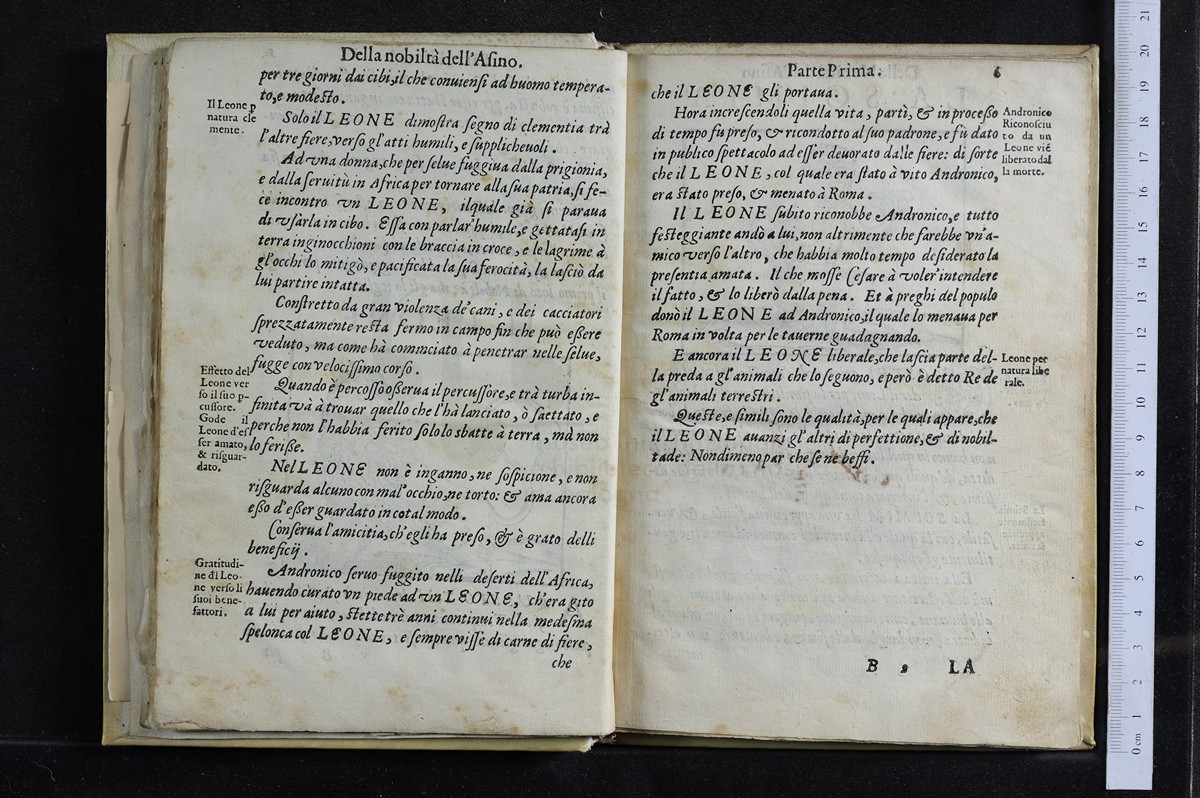 Della nobiltà dell'Aſino.
per tre giorni dai cibi, il che conuienſi ad huomo tempera-
to, e modeſto.
Il Leone p
natura cle
mente.
Solo il LEONE dimoſtra ſegno di clementia trà
l'altre fiere, verſo gl'atti humili, e ſupplicheuoli.
Ad vna donna, che per ſelue fuggiua dalla prigionia,
e dalla ſeruitù in Africa per tornare alla ſua patria, ſi fe-
ce incontro vn LEONE, ilquale già ſi paraua
di vſarla in cibo. Eſſa con parlar'humile, e gettataſi in
terra inginocchioni con le braccia in croce, e le lagrime à
gl'occhi lo mitigò, e pacificata la ſua ferocità, la laſciò da
lui partire intatta.
Conſtretto da gran violenza de'cani, e dei cacciatori
ſprezzatamente reſta fermo in campo fin che può eßere
veduto, ma come hà cominciato à penetrar nelle ſelue,
fugge con velociſſimo corſo.
Effetto del
Leone ver
ſo il ſuo p-
cuſſore.
Gode il
Leone d'eſ
ſer amato,
& riſguar-
dato.
Quando è percoſſo oßerua il percuſſore, e trà turba in-
finita và à trouar quello che l'hà lanciato, ò ſaettato, e
perche non l'habbia ferito ſolo lo sbatte à terra, mà non
lo feriße.
Nel LEONE non è inganno, ne ſoſpicione, e non
riſguarda alcuno con mal'occhio, ne torto: & ama ancora
eßo d'eßer guardato in cotal modo.
Conſerua l'amicitia, ch'egli ha preſo, & è grato delli
beneficij.
Gratitudi-
ne di Leo-
ne verſo li
ſuoi bene-
fattori.
Andronico ſeruo fuggito nelli deſerti dell'Africa,
hauendo curato vn piede ad vn LEONE, ch'era gito
a lui per aiuto, ſtette trè anni continui nella medeſma
ſpelonca col LEONE, e ſempre viſſe di carne di fiere,
che
Parte Prima. 6
che il LEONE gli portaua.
Hora increſcendoli quella vita, partì, & in proceßo
di tempo fù preſo, & ricondotto al ſuo padrone, e fù dato
in publico ſpettacolo ad eſſer deuorato dalle fiere: di ſorte
che il LEONE, col quale era ſtato à vito Andronico,
era ſtato preſo, & menato à Roma.
Andronico
Riconoſciu
to da un
Leone viẽ
liberato dal
la morte.
Il LEONE ſubito riconobbe Andronico, e tutto
feſteggiante andò a lui, non altrimente che farebbe vn'a-
mico verſo l'altro, che habbia molto tempo deſiderato la
preſentia amata. Il che moſſe Ceſare à voler'intendere
il fatto, & lo liberò dalla pena. Et à preghi del populo
donò il LEONE ad Andronico, il quale lo menaua per
Roma in volta per le tauerne guadagnando.
E ancora il LEONE liberale, che laſcia parte del-
la preda a gl'animali che lo ſeguono, e però è detto Re de
gl'animali terreſtri.
Leone per
natura libe
rale.
Queſte, e ſimili ſono le qualità, per le quali appare, che
il LEONE auanzi gl'altri di perfettione, & di nobil-
tade: Nondimeno par che ſe ne beffi.
B 2 LA
21
20
19
18
17
16
15
14
13
12
11
10
9
8
7
6
5
4
3
2
1
0 cm